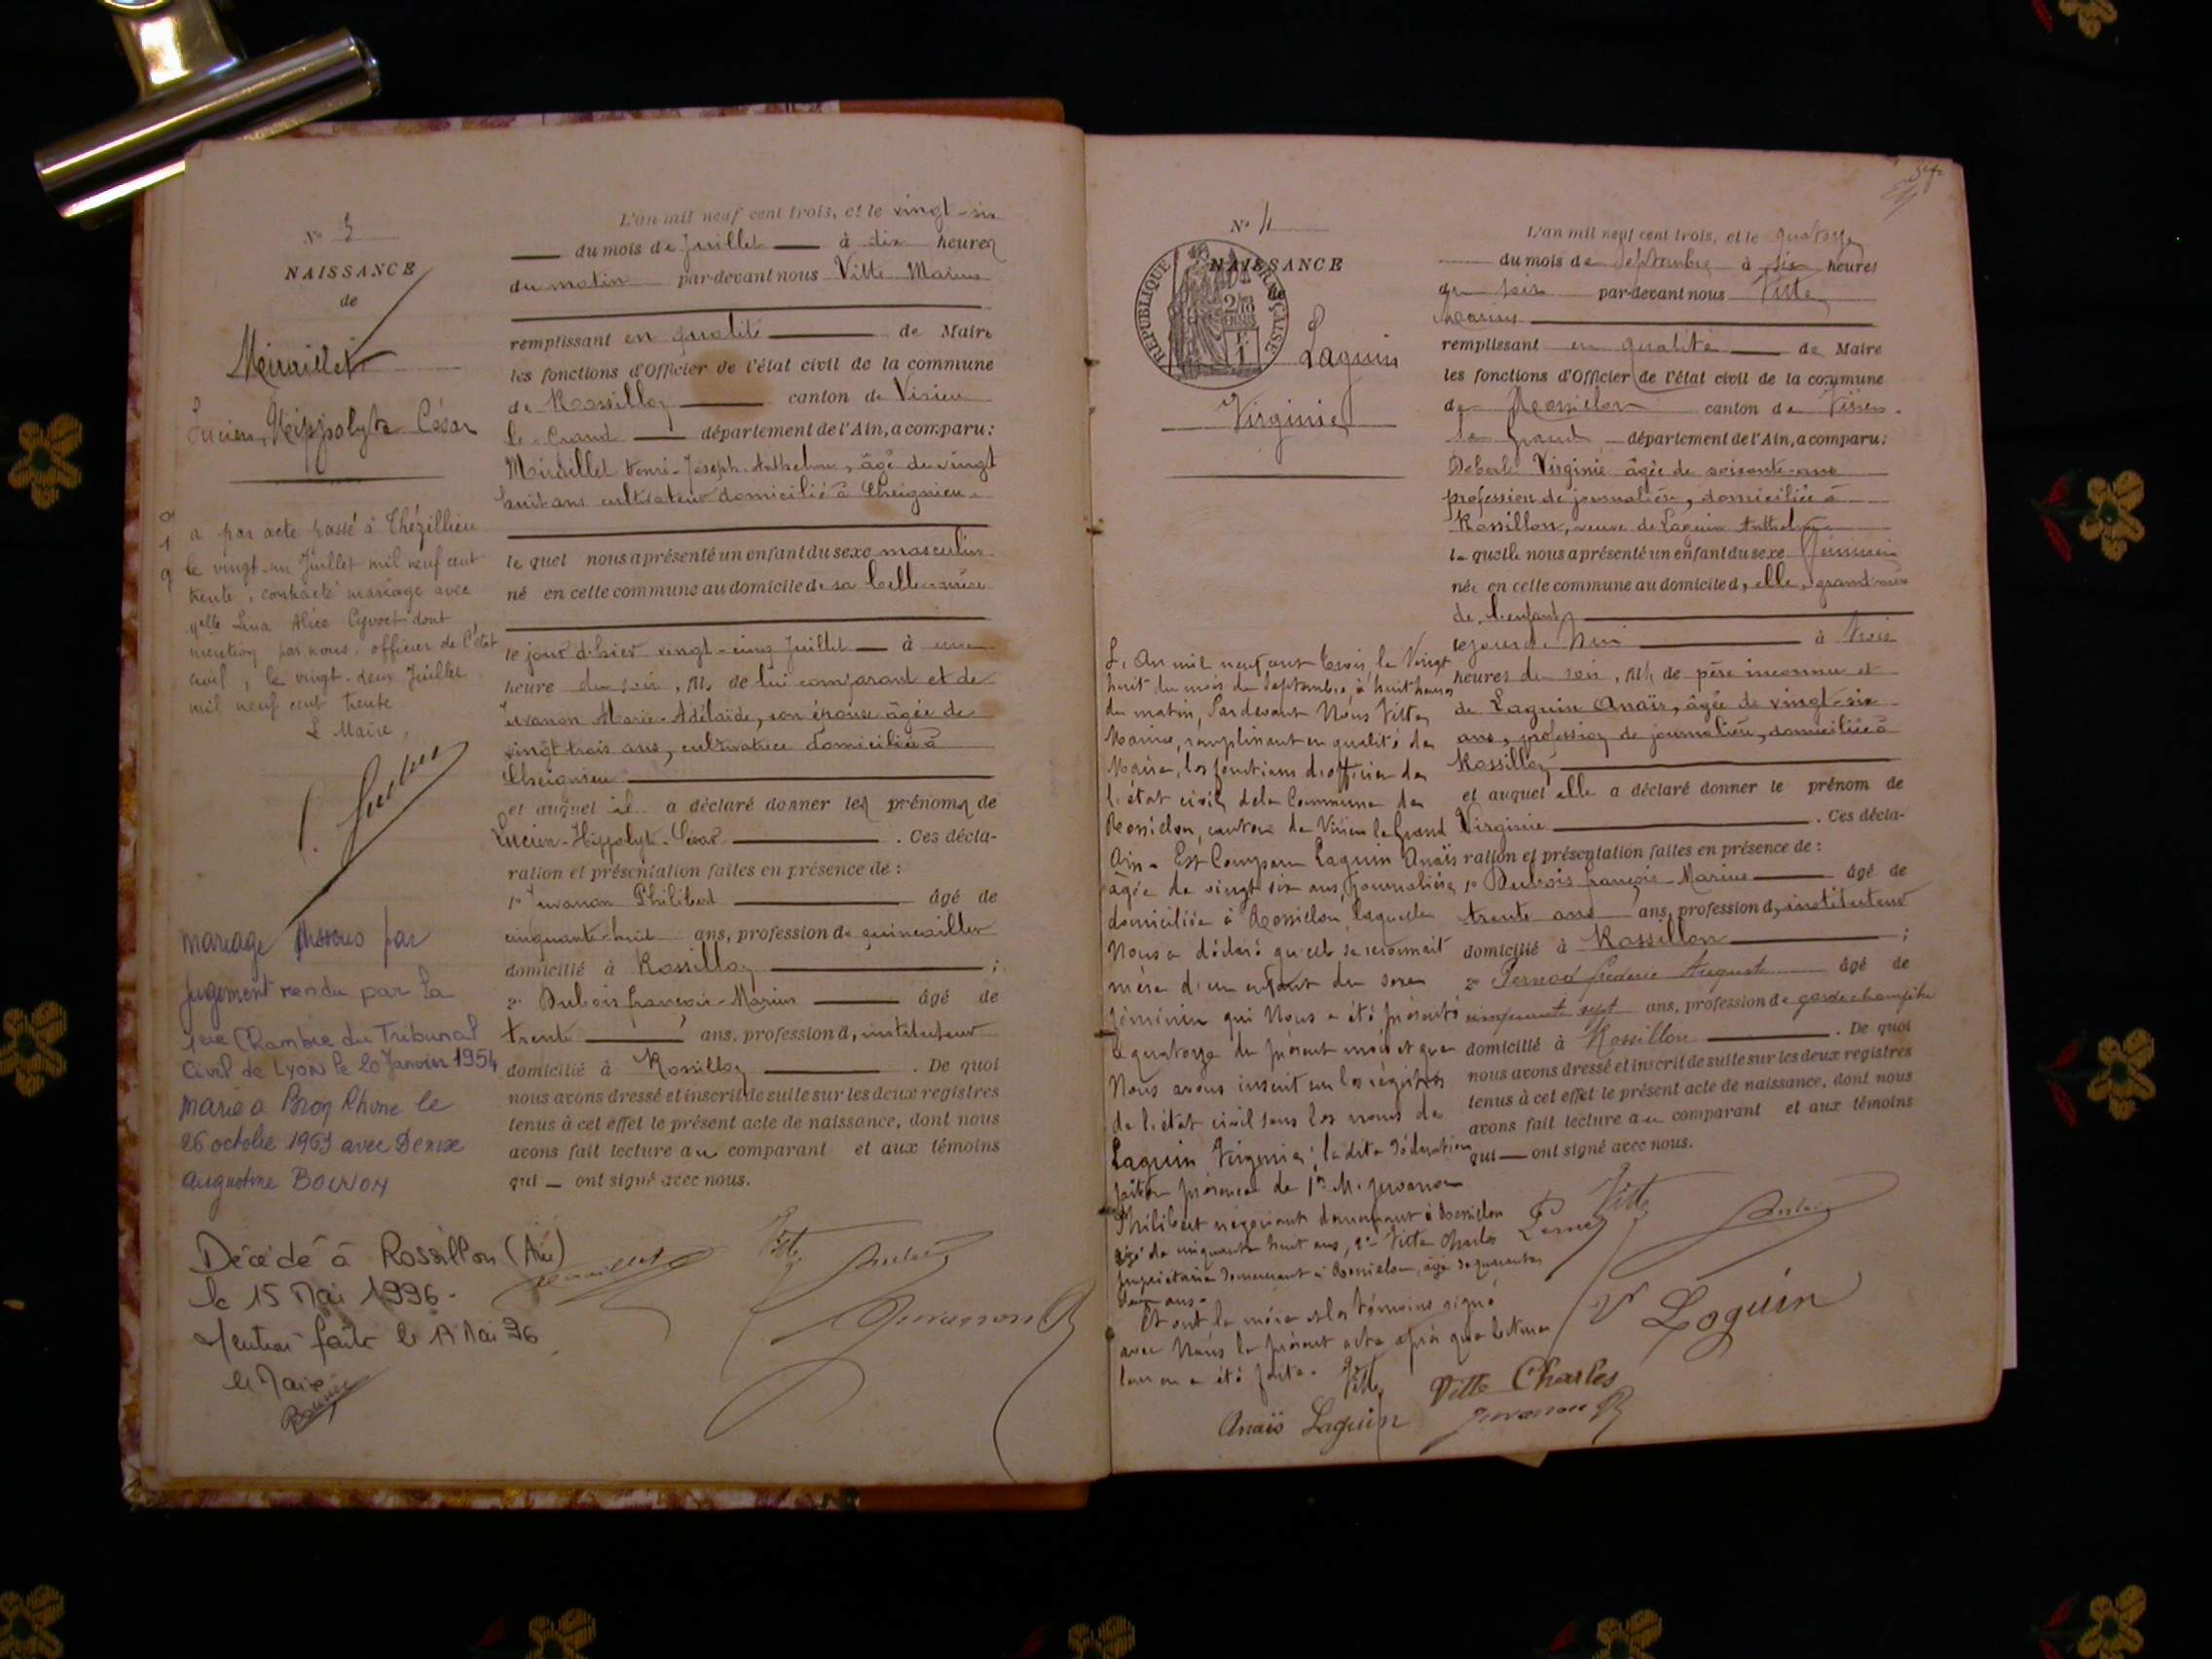 N° 3
NAISSANCE
de
Miraillet
Lucien, Hippolyte César
a par acte passé à Thézillieu
le vingt-un Juillet mil neuf cent
trente, contracté mariage avec
Melle Lina Alice Cyvoct dont
mention par nous, officier de l'état
civil, le vingt-deux Juillet
mil neuf cent trente
L Maire,
mariage dissous par
jugement rendu par la
1ere Chambre du Tribunal
Civil de LYON le 20 Janvier 1954
marié a Bron Rhone le
26 octobre 1963 avec Denise
augustine
Décédé à Rossillon (Ain)
le 15 Mai 1996 -
Mention faite le 17 Mai 96
le Maire
L'an mil neuf cent trois, et le vingt-six
du mois de Juillet à dix heures
du matin par-devant nous Vitte Marius
remplissant en qualité de Maire
les fonctions d'Officier de l'état civil de la commune
de Rossillon canton de Virieu
le-Grand département de l'Ain, a comparu:
Miraillet Henri-Joseph-Anthelme, âgé de vingt
huit ans cultivateur domicilié à Cheignieu
le quel nous a présenté un enfant du sexe masculin
né en cette commune au domicile de sa belle-mère
le jour d'hier vingt-cinq Juillet à une
heure du soir, fils de lui comparant et de
Juvanon Marie-Adélaïde, son épouse âgée de
vingt trois ans, cultivatrice domiciliée à
Cheignieu
et auquel il a déclaré donner les prénoms de
Lucien-Hippolyte-César . Ces décla-
ration et présentation faites en présence de :
1° Juvanon Philibert âgé de
cinquante-huit ans, profession de quincailler
domicilié à Rossillon ;
2° Dubois françois-Marius âgé de
trente ans, profession d, instituteur
domicilié à Rossillon . De quoi
nous avons dressé et inscrit de suite sur les deux registres
tenus à cet effet le présent acte de naissance, dont nous
avons fait lecture au comparant et aux témoins
qui — ont signé avec nous.
Miraillet Vitte Dubois
Juvanon
N° 4
NAISSANCE
de
REPUBLIQUE FRANÇAISE
Laguin
Virginie
L'an mil neuf cent trois, le Vingt
huit du mois de Septembre, à huit heures
du matin, Par devant Nous Vitte
Marius, remplissant en qualité de
Maire, les fonctions d'officier de
l'état civil de la Commune de
Rossillon, canton de Virieu le Grand
Ain - Est Comparu Laguin Anaïs
âgée de vingt six ans, journalière
domiciliée à Rossillon, laquelle
Nous a déclaré qu'elle se reconnait
mère d'un enfant du sexe
féminin qui Nous a été présenté
le quatorze du présent mois et que
Nous avons inscrit sur les régistres
de l'état civil sous les noms de
Laguin Virginie; la dite déclaration
faite en présence de 1° M. Juvanon
Philibert négociant demeurant à Rossillon
âgé de cinquante huit ans, 2° Vitte Charles
propriétaire demeurant à Rossillon, âgé de quarante
deux ans.
Et ont la mère et les témoins signé
avec Nous le présent acte après que lecture
leur en a été faite. Vitte
Anaïs Laguin
L'an mil neuf cent trois, et le quatorze
du mois de Septembre à six heures
du soir par-devant nous Vitte
Marius
remplissant en qualité de Maire
les fonctions d'Officier de l'état civil de la commune
de Rossillon canton de Virieu
le Grand département de l'Ain, a comparu:
Virginie âgée de soixante-ans
profession de journalière, domiciliée à
Rossillon, veuve de Laguin Anthelme
la quelle nous a présenté un enfant du sexe féminin
née en cette commune au domicile d, elle, grand'mère
de l'enfant
à trois
heures du soir, fille de père inconnu et
de Laguin Anaïs, âgée de vingt-six
ans, profession de journalière, domiciliée à
Rossillon
et auquel elle a déclaré donner le prénom de
Virginie . Ces décla-
ration et présentation faites en présence de :
1° Dubois françois-Marius âgé de
trente ans ans, profession d, instituteur
domicilié à Rossillon ;
2° Pernod frédéric August âgé de
cinquante sept ans, profession de garde champêtre
domicilié à Rossillon . De quoi
nous avons dressé et inscrit de suite sur les deux registres
tenus à cet effet le présent acte de naissance, dont nous
avons fait lecture au comparant et aux témoins
qui — ont signé avec nous.
Vitte
Dubois
V Laguin
Vitte Charles
Juvanon